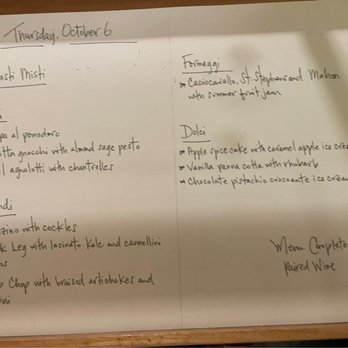 Thursday, October 6
asti Misti
pa al pomodoro
otta gnocchi with almond sage pesto
il agnolotti with chantrelles
ndi
zino with cockles
k Leg with lacinato Kale and cannellini
ns
Chop with braised artichokes and
ini
Formaggi
Caciocavallo, St Stephens and Mahon
with summer fruit jam
Dolci
Apple spice cake with caramel apple ice crea
Vanilla panna cotta with rhubarb
Chocolate pistachio croccante ice crea
Menu Completo
Paired Wine